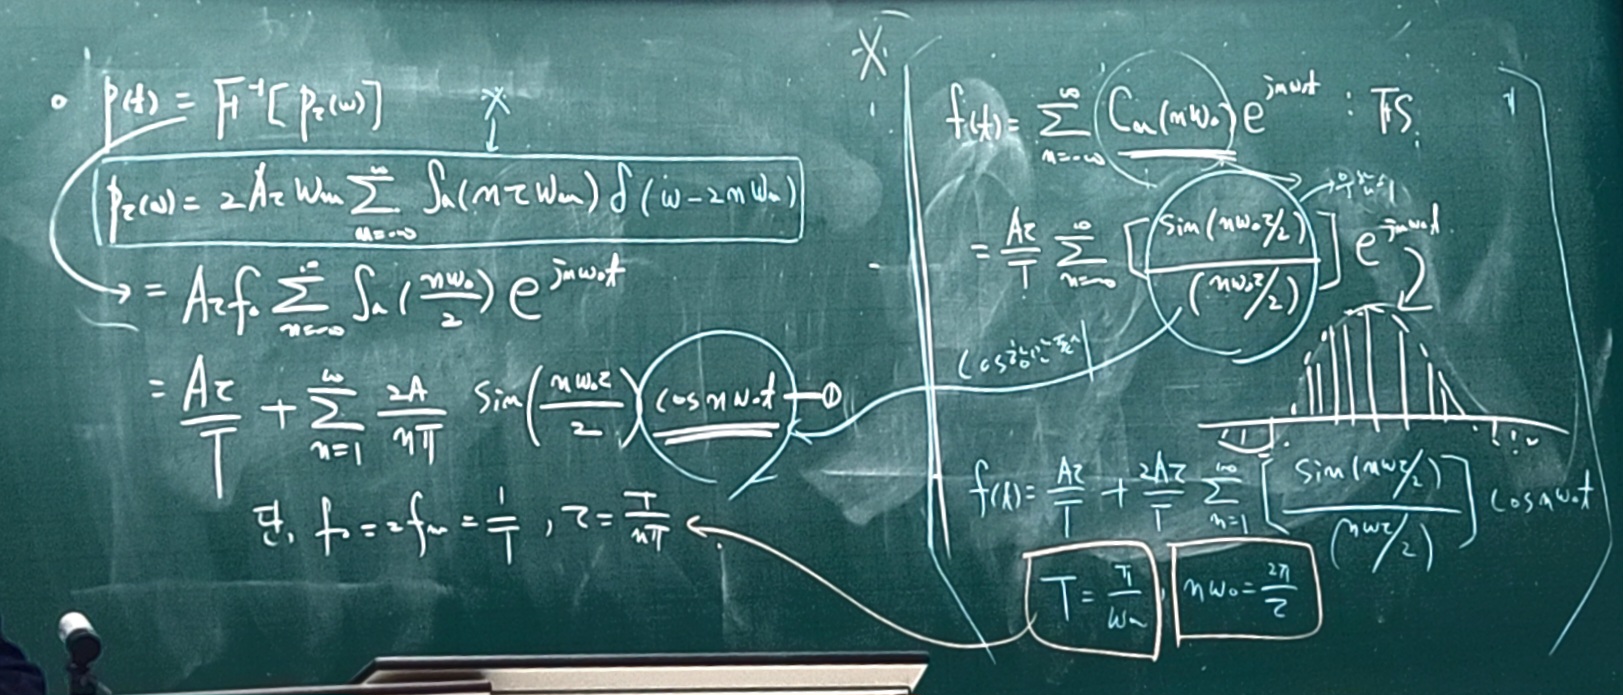 ∘ p(t) = F⁻¹[p_τ(ω)]
※
p_τ(ω) = 2AτW_m Σ_{n=-∞}^{∞} Sa(nτW_m) δ(ω-2nW_m)
= Aτf₀ Σ_{n=-∞}^{∞} Sa(nω₀/2) e^{jnω₀t}
= Aτ/T + Σ_{n=1}^{∞} 2A/nπ sin(nω₀τ/2) cos nω₀t —①
단, f₀ = 2f_m = 1/T, τ = T/nπ
※
f(t) = Σ_{n=-∞}^{∞} C_n(nω₀) e^{jnω₀t} : FS
= Aτ/T Σ_{n=-∞}^{∞} [sin(nω₀τ/2) / (nω₀τ/2)] e^{jnω₀t}
f(t) = Aτ/T + 2Aτ/T Σ_{n=1}^{∞} [sin(nωτ/2) / (nωτ/2)] cos nω₀t
T = π/W_m, nω₀ = 2π/τ